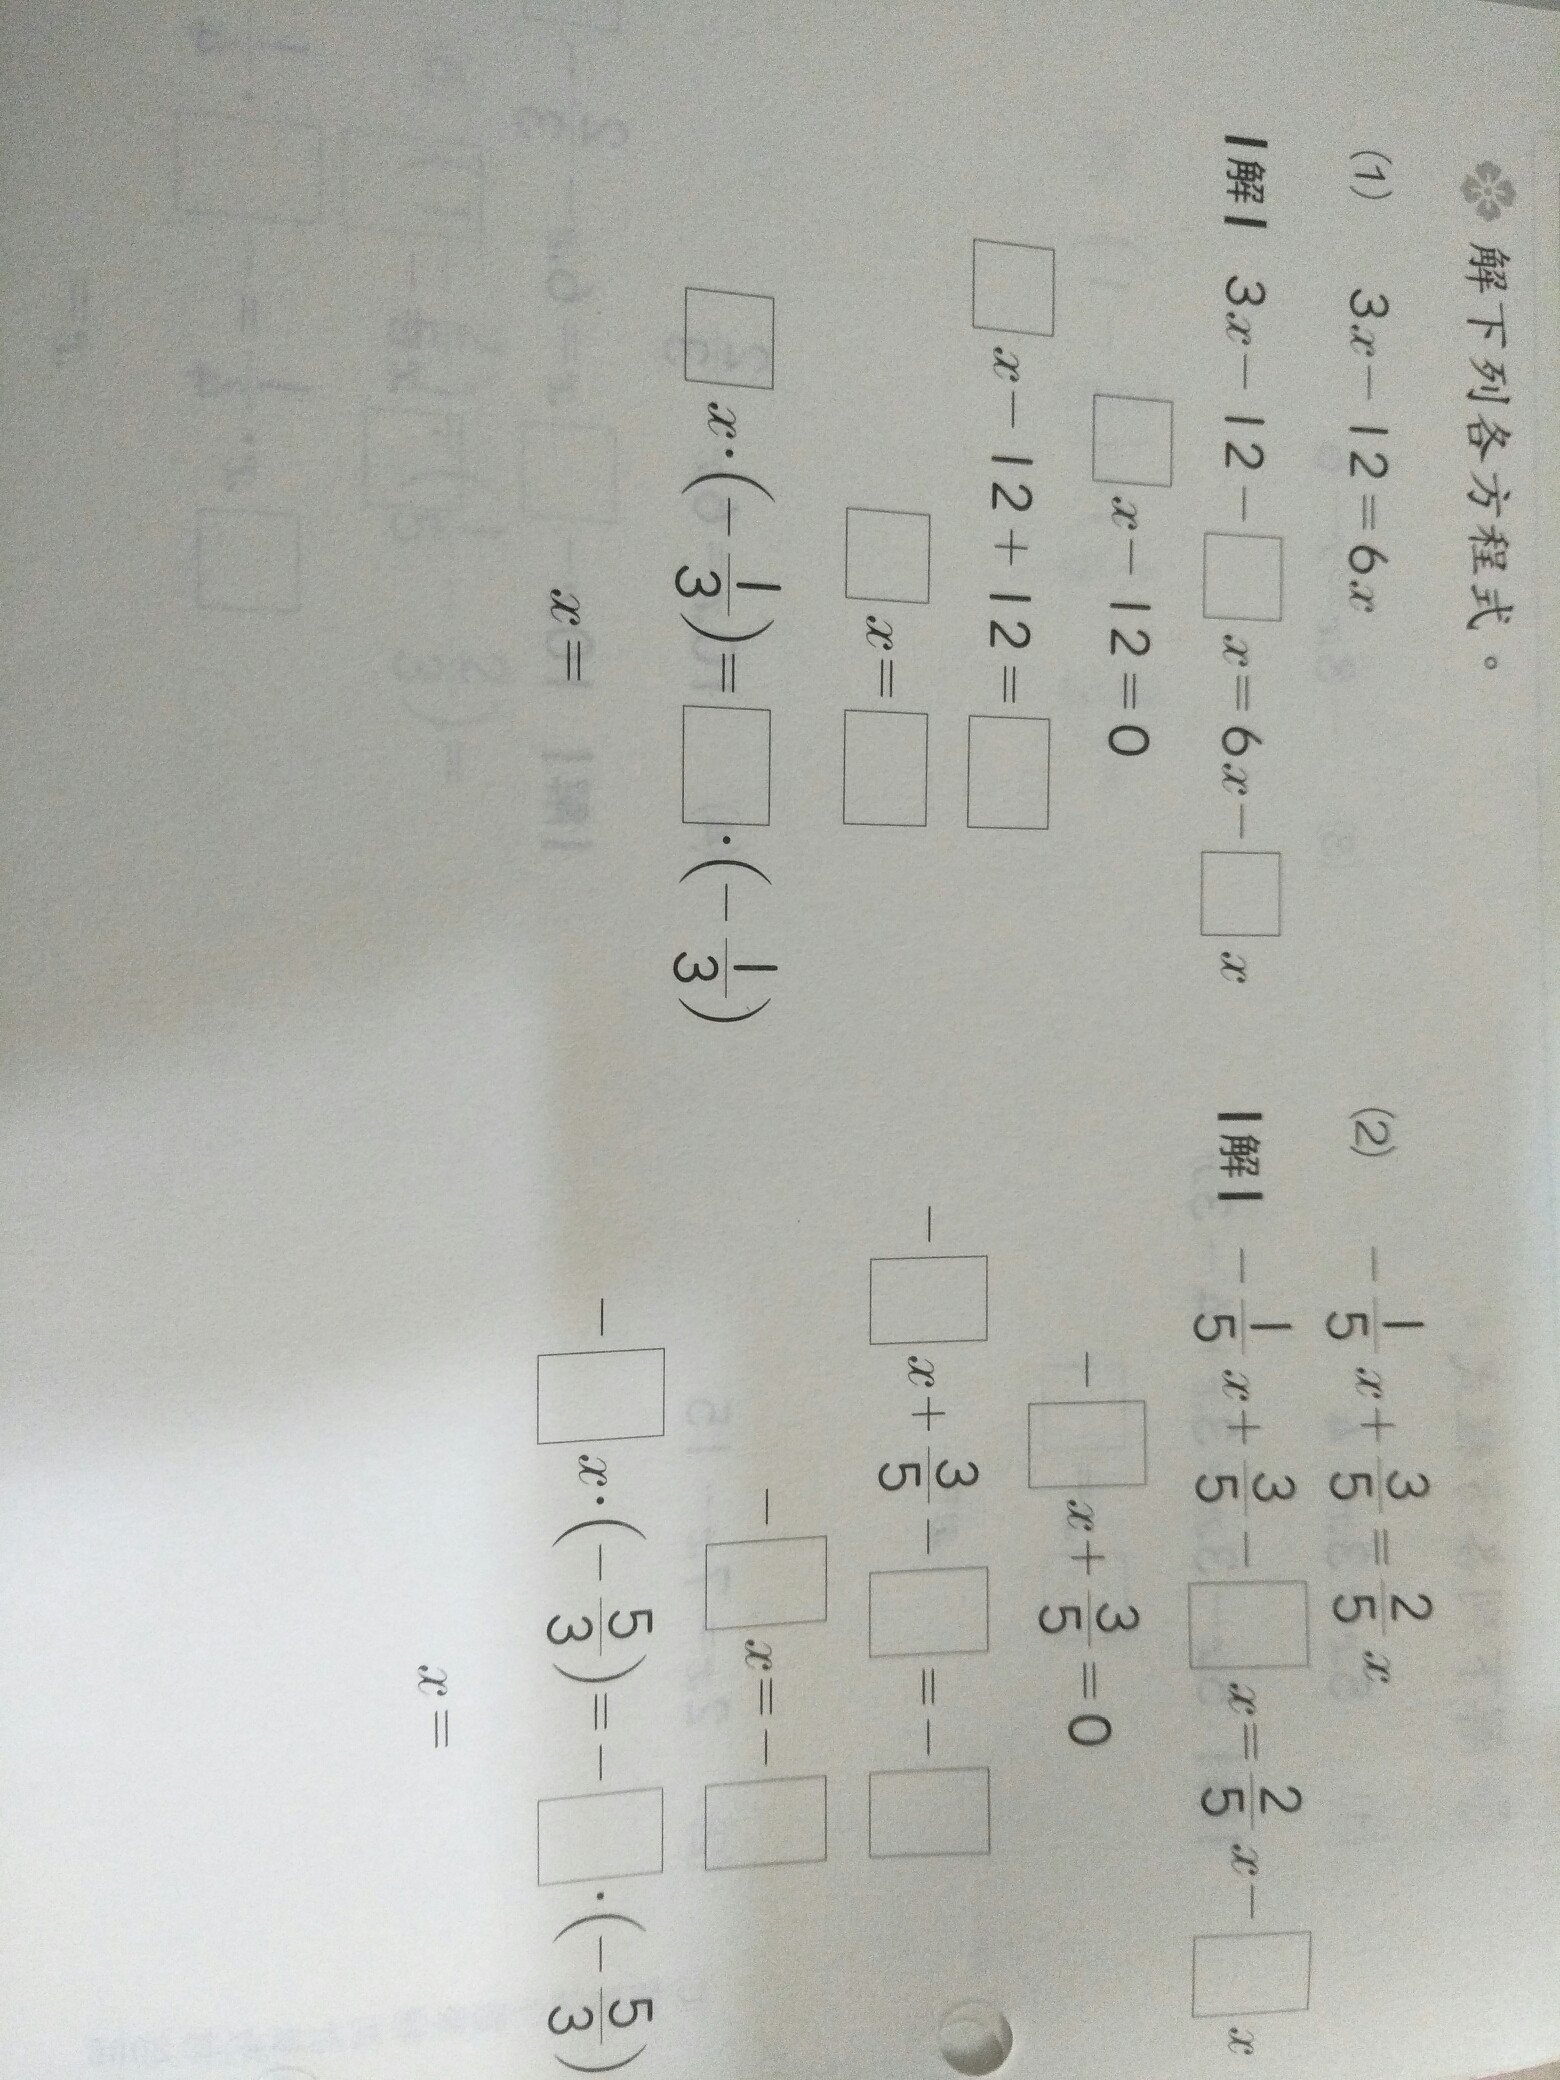 解下列各方程式。
(1) 3x－12＝6x
解 3x－12－□x＝6x－□x
□x－12＝0
□x－12＋12＝□
□x＝□
□x·(－1/3)＝□·(－1/3)
x＝
(2) －1/5x＋3/5＝2/5x
解 －1/5x＋3/5－□x＝2/5x－□x
－□x＋3/5＝0
－□x＋3/5－□＝－□
－□x＝－□
－□x·(－5/3)＝－□·(－5/3)
x＝